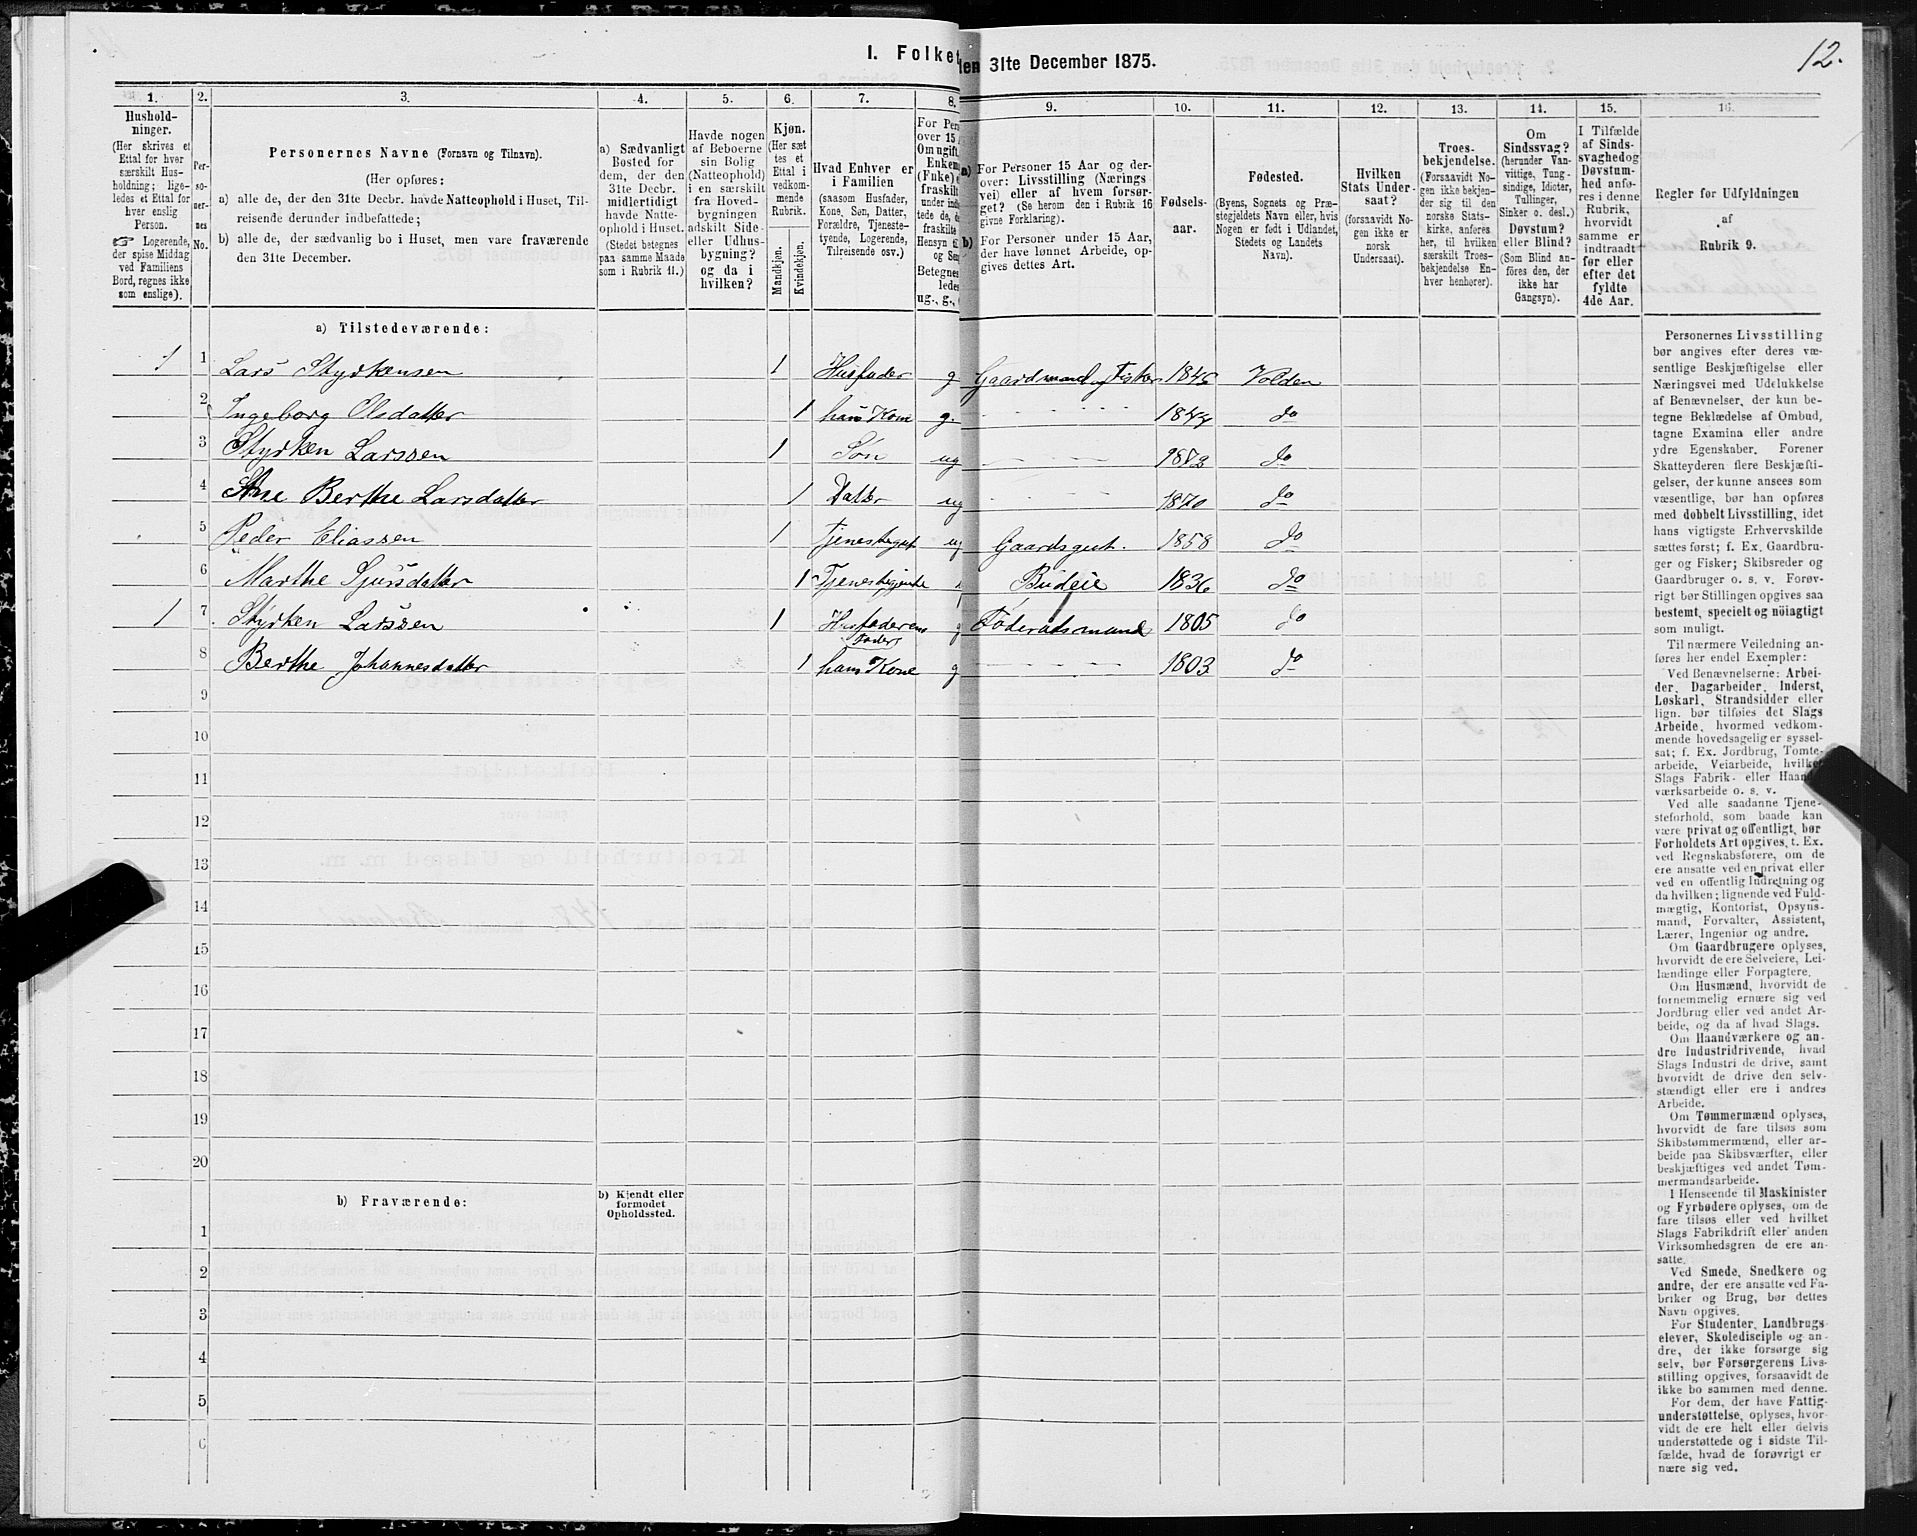 12.
I. Folket
den 31te December 1875.
1. 2. 3. 4. 5. 6. 7. 8. 9. 10. 11. 12. 13. 14. 15. 16.
Hushold-
ninger.
(Her skrives et
Ettal for hver
særskilt Hus-
holdning; lige-
ledes et Ettal for
hver enslig
Person.
☞ Logerende,
der spise Middag
ved Familiens
Bord, regnes ikke
som enslige).
Per-
so-
ner-
nes
No.
Personernes Navne (Fornavn og Tilnavn).
(Her opføres:
a) alle de, der den 31te Decbr. havde Natteophold i Huset, Til-
reisende derunder indbefattede;
b) alle de, der sædvanlig bo i Huset, men vare fraværende
den 31te December.
a) Sædvanligt
Bosted for
dem, der den
31te Decbr.
midlertidigt
havde Natte-
ophold i Huset.
(Stedet betegnes
paa samme Maade
som i Rubrik 11.)
Havde nogen
af Beboerne
sin Bolig
(Natteophold)
i en særskilt
fra Hoved-
bygningen
adskilt Side-
eller Udhus-
bygning?
og da i
hvilken?
Kjøn.
(Her sæt
tes et
Ettal i
vedkom-
mende
Rubrik.
Mandkjøn.
Kvindekjøn.
Hvad Enhver er
i Familien
(saasom Husfader,
Kone, Søn, Datter,
Forældre, Tjeneste-
tyende, Logerende,
Tilreisende osv.)
For Pers
over 15 A
Om ugift,
Enkem
(Fuke) e
fraskilt
under indb
tede de, d
fraskilte
Hensyn ti
og Sen
Betegnes
ledes
ug., g.,
a) For Personer 15 Aar og der-
over: Livsstilling (Nærings
vei) eller af hvem forsør-
get? (Se herom den i Rubrik 16
givne Forklaring).
b) For Personer under 15 Aar,
der have lønnet Arbeide, op-
gives dettes Art.
Fødsels-
aar.
Fødested.
(Byens, Sognets og Præ-
stegjeldets Navn eller, hvis
Nogen er født i Udlandet,
Stedets og Landets
Navn).
Hvilken
Stats Under-
saat?
(forsaavidt No-
gen ikke er
norsk
Undersaat).
Troes-
bekjendelse.
(Forsaavidt No-
gen ikke bekjen-
der sig til den
norske Stats-
kirke, anføres
her, til hvilken
særskilt Troes-
bekjendelse En-
hver henhører).
Om
Sindssvag?
(herunder Van-
vittige, Tung-
sindige, Idioter,
Tullinger,
Sinker o. desl.)
Døvstum?
eller Blind?
(Som Blind an-
føres den, der
ikke har
Gangsyn).
I Tilfælde
af Sinds-
svaghed og
Døvstum-
hed anfø-
res i denne
Rubrik,
hvorvidt
samme er
indtraadt
før eller
efter det
fyldte
4de Aar.
Regler før Udfyldningen
af
Rubrik 9.
a) Tilstedeværende:
1 1 Lars Styrkensen 1 Husfader g Gaardmand og Fisker 1845 Volden
2 Ingeborg Olsdatter 1 hans Kone g. 1844 do
3 Styrken Larssen 1 Søn ug 1873 do
4 Ane Berthe Larsdatter 1 Datter ug 1870 do
5 Peder Eliassen 1 Tjenestegut ug Gaardsgut. 1858 do
6 Marthe Sjursdatter 1 Tjenestepige Budeie 1836 do
1 7 Styrken Larssen 1 Husfaderens Fader g Føderaadsmand 1805 do
8 Berthe Johannesdatter 1 hans Kone g 1803 do
9
10
11
12
13
14
15
16
17
18
19
20
b) Fraværende:
b) Kjendt eller
formodet
Opholdssted.
1
2
3
4
5
6
Personernes Livsstilling
bør angives efter deres væ-
sentlige Beskjæftigelse eller
Næringsvei med Udelukkelse
af Benævnelser, der kun be-
tegne Beklædelse af Ombud,
tagne Examina eller andre
ydre Egenskaber. Forener
Skatteyderen flere Beskjæfti-
gelser, der kunne ansees som
væsentlige, bør han opføres
med dobbelt Livsstilling, idet
hans vigtigste Erhvervskilde
sættes først; f. Ex. Gaardbru-
ger og Fisker; Skibsreder og
Gaardbruger o. s. v. Forøv-
rigt bør Stillingen opgives saa
bestemt, specielt og nøiagtigt
som muligt.
Til nærmere Veiledning an-
føres her endel Exempler:
Ved Benævnelserne: Arbei-
der, Dagarbeider, Inderst,
Løskarl, Strandsidder eller
lign. bør tilføies det Slags
Arbeide, hvormed vedkom-
mende hovedsagelig er syssel-
sat; f. Ex. Jordbrug, Tomte-
arbeide, Veiarbeide, hvilket
Slags Fabrik- eller Haand-
værksarbeide o. s. v.
Ved alle saadanne Tjene-
steforhold, som baade kan
være privat og offentligt, bør
Forholdets Art opgives, t. Ex.
ved Regnskabsførere, om de
ere ansatte ved en privat eller
ved en offentlig Indretning og
da hvilken; lignende ved Fuld-
mægtig, Kontorist, Opsyns-
mand, Forvalter, Assistent,
Lærer, Ingeniør og andre.
Om Gaardbrugere oplyses,
hvorvidt de ere Selveiere, Lei-
lændinge eller Forpagtere.
Om Husmænd, hvorvidt de
fornemmelig ernære sig ved
Jordbrug eller ved andet Ar-
beide, og da af hvad Slags.
Om Haandværkere og an-
dre Industridrivende, hvad
Slags Industri de drive, samt
hvorvidt de drive den selv-
stændigt eller ere i andres
Arbeide.
Om Tømmermænd oplyses,
hvorvidt de fare tilsøs som
Skibstømmermænd, eller ar-
beide paa Skibsværfter, eller
beskjæftiges ved andet Tøm-
mermandsarbeide.
I Henseende til Maskinister
og Fyrbødere oplyses, om de
fare tilsøs eller ved hvilket
Slags Fabrikdrift eller anden
Virksomhedsgren de ere an-
satte.
Ved Smede, Snedkere og
andre, der ere ansatte ved Fa-
briker og Brug, bør dettes
Navn opgives.
For Studenter, Landbrugs-
elever, Skoledisciple og an-
dre, der ikke forsørge sig
selv, bør Forsørgerens Livs-
stilling opgives, forsaavidt de
ikke bo sammen med denne.
For dem, der have Fattig-
understøttelse, oplyses, hvor-
vidt de ere helt eller delvis
understøttede og i sidste Til-
fælde, hvad de forøvrigt er
nære sig ved.